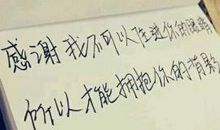 感谢我不可以住进你的眼睛
所以才能拥抱你的背影